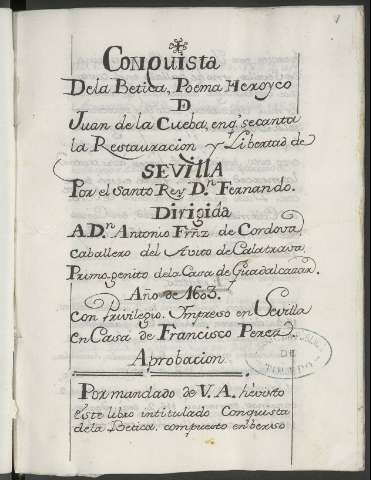 Conquista
De la Betica, Poema Heroyco
D
Juan de la Cueba, enq.e secanta
la Restauracion y Libertad de
SEVILLA
Por el Santo Rey D.n Fernando.
Dirigida
A D.n Antonio Frñz de Cordova,
caballero del Avito de Calatrava,
Primogenito dela Casa de Guadalcazar.
Año de 1603.
con Privilegio. Impreso en Sevilla
en Casa de Francisco Perez
Aprobacion
Por mandado de V. A. hè visto
Este libro intitulado Conquista
dela Betica, compuesto en berso
DE
TOLEDO